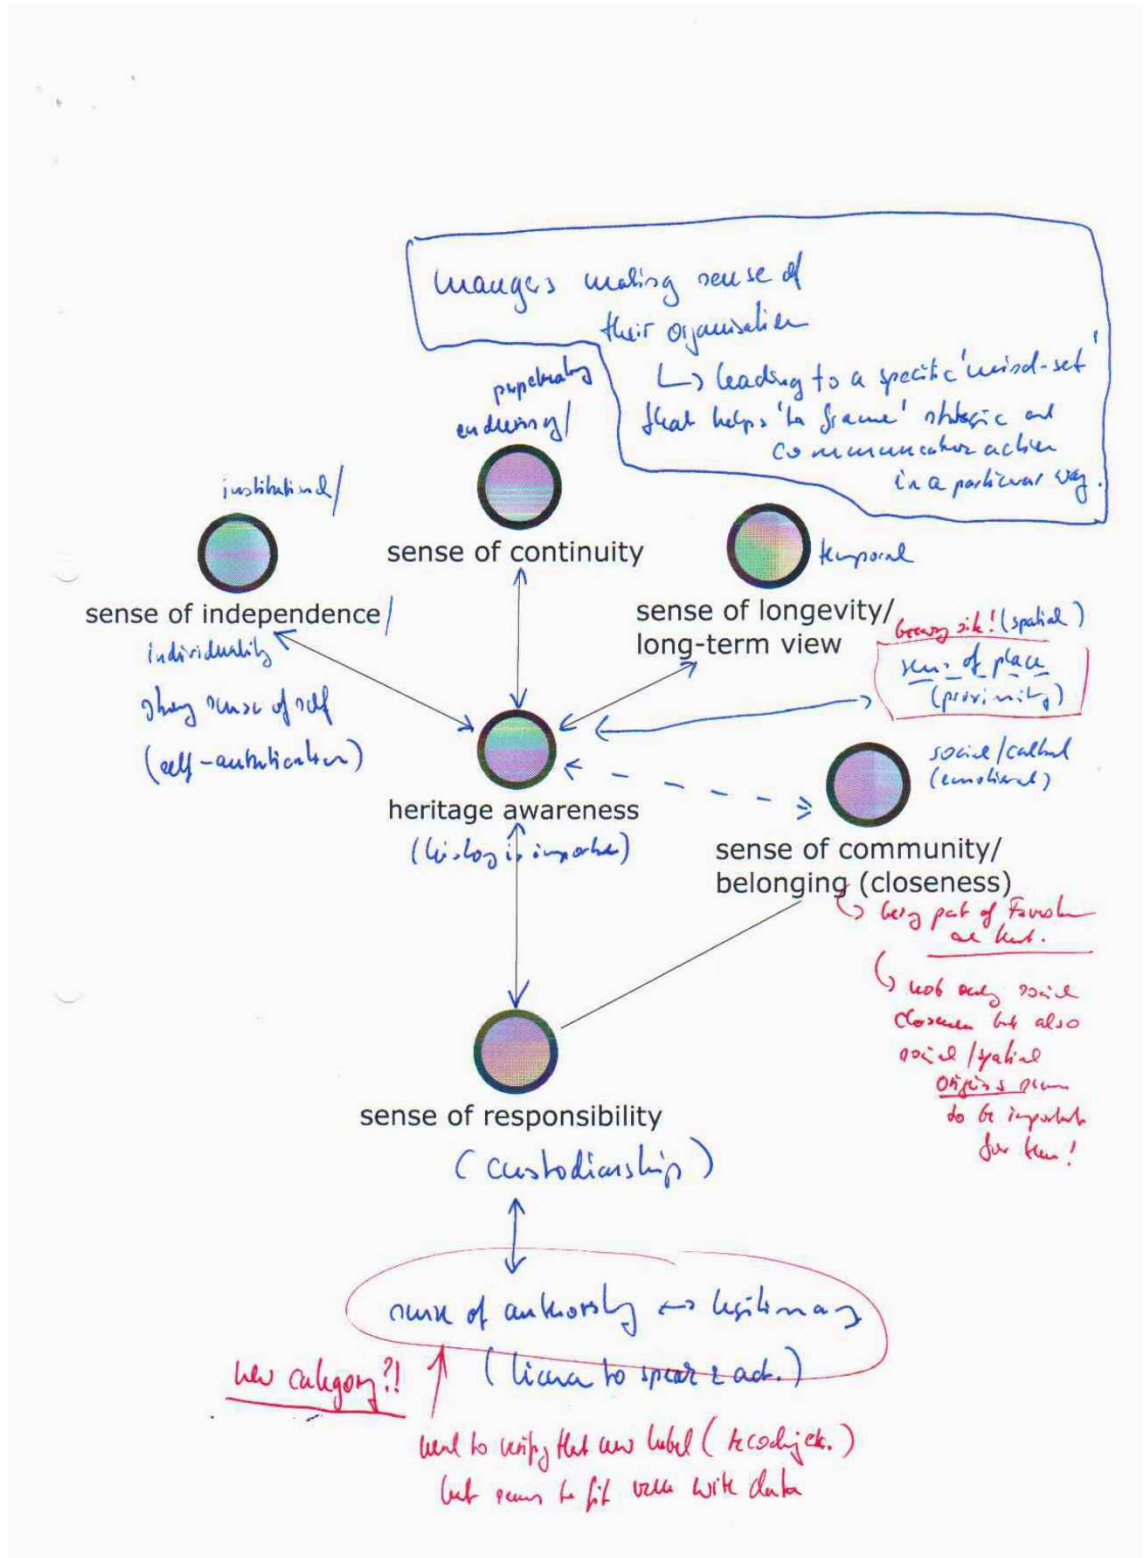 managers making sense of
their organisation
↳ leading to a specific 'mind-set'
that helps 'to frame' strategic and
communicative action
in a particular way.
perpetuating
enduring/
sense of continuity
institutional/
sense of independence/
individuality
strong sense of self
(self-authentication)
temporal
sense of longevity/
long-term view
brewery site! (spatial)
sense of place
(proximity)
heritage awareness
(history is important)
social/cultural
(emotional)
sense of community/
belonging (closeness)
↳ being part of
Kent.
↳ not only social
closeness but also
social/spatial
origins seem
to be important
for them!
sense of responsibility
(custodianship)
sense of authority ↔ legitimacy
(licence to speak & act.)
new category?!
need to verify that new label (recoding etc.)
but seems to fit well with data